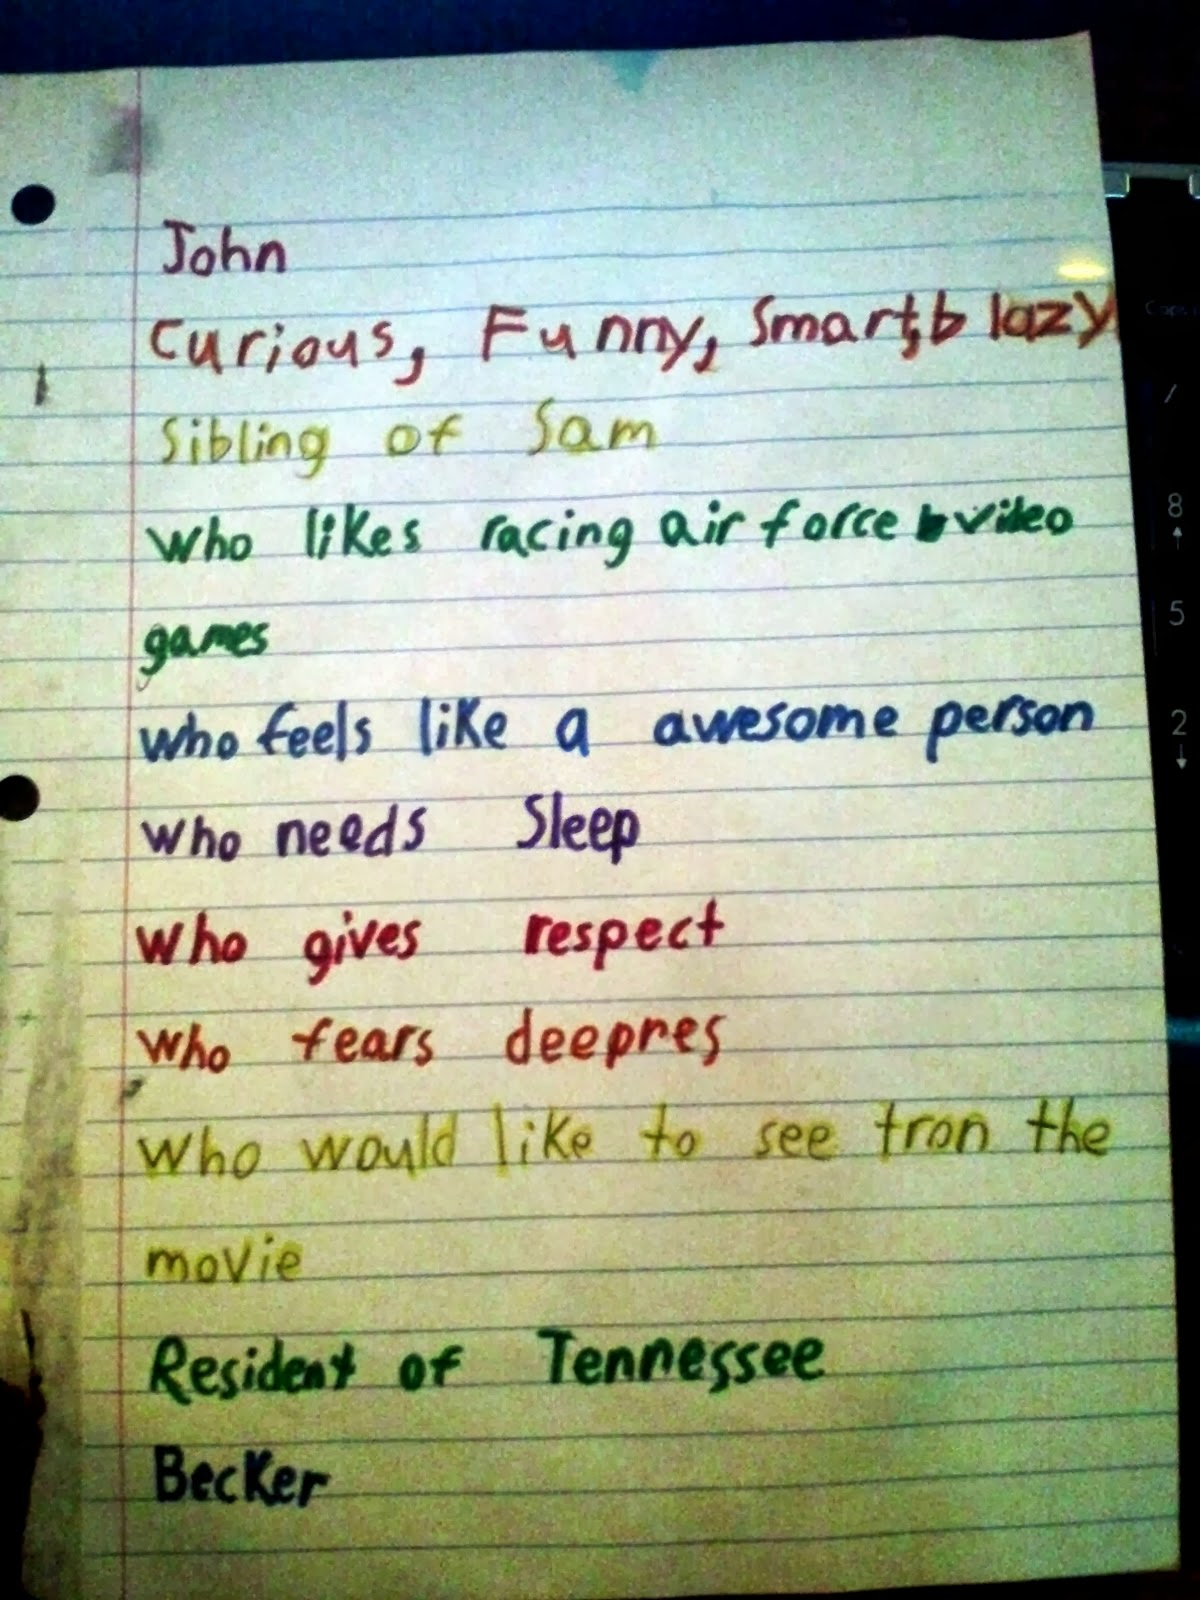 John
Curious, Funny, Smart, & lazy
Sibling of Sam
who likes racing air force & video
games
who feels like a awesome person
who needs Sleep
who gives respect
who fears deepnes
who would like to see tron the
movie
Resident of Tennessee
Becker
8
5
2